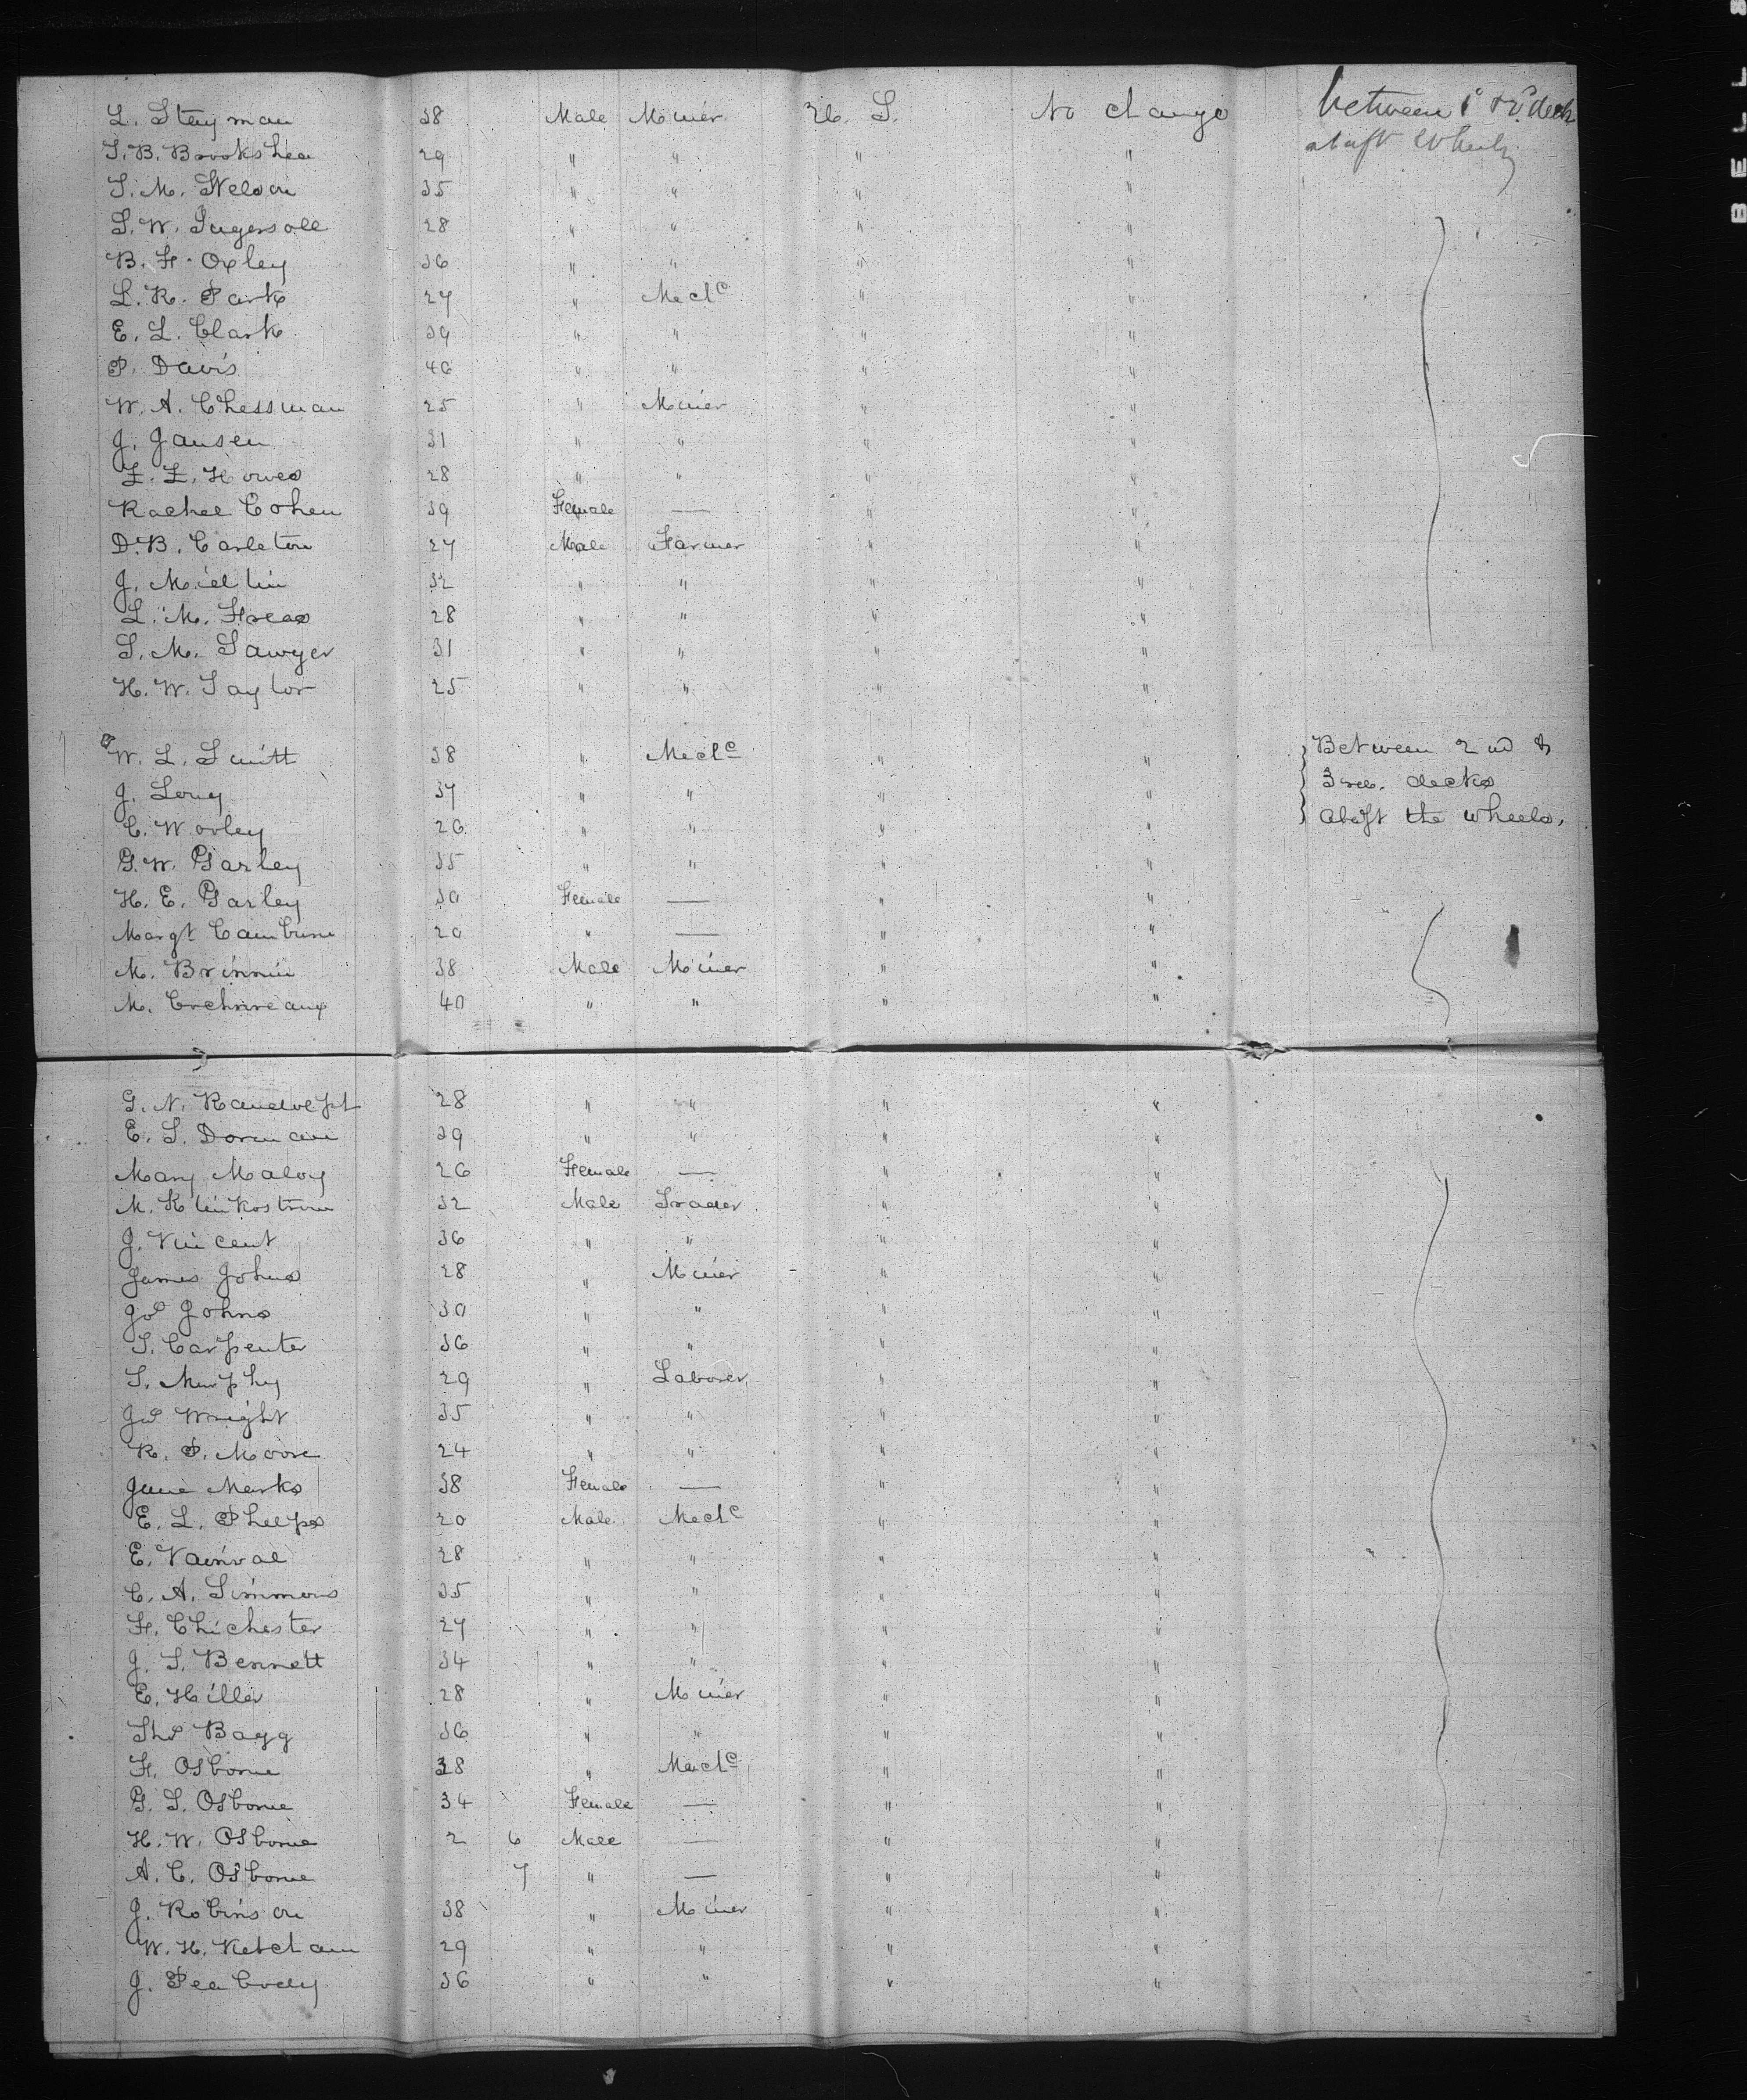 L. Stayman 38 Male Miner U. S. No change between 1st & 2d deck
T. B. Brookshea 29 " " " " abaft Wheels
T. M. Nelson 35 " " " "
S. W. Ingersoll 28 " " " "
B. F. Oxley 36 " " " "
L. R. Park 27 " Mechc " "
E. L. Clark 39 " " " "
P. Davis 46 " " " "
W. A. Chessman 25 " Miner " "
J. Jansen 31 " " " "
L. L. Howes 28 " " " "
Rachel Cohen 39 Female — " "
D. B. Carleton 27 Male Farmer " "
J. Millin 32 " " " "
L. M. Freas 28 " " " "
S. M. Sawyer 31 " " " "
H. W. Taylor 25 " " " "
W. L. Smitt 38 " Mechc " " Between 2nd &
J. Long 37 " " " " 3rd. decks
C. Worley 26 " " " " abaft the wheels.
G. W. Garley 35 " " " "
H. E. Garley 30 Female — " "
Margt Camburn 20 " — " "
M. Brinnin 38 Male Miner " "
M. 40 " " " "
G. N. Randolph 28 " " " "
E. S. Dorman 39 " " " "
Mary Maloy 26 Female — " "
M. Klinkostrom 32 Male Trader " "
J. Vincent 36 " " " "
James Johns 28 " Miner " "
Jos Johns 30 " " " "
S. Carpenter 36 " " " "
T. Murphy 29 " Laborer " "
Jos Wright 35 " " " "
R. P. Moore 24 " " " "
Jane Marks 38 Female — " "
E. L. Phelps 20 Male Mechc " "
E. Vainval 28 " " " "
C. A. Simmons 35 " " " "
F. Chichester 27 " " " "
J. S. Bennett 34 " " " "
E. Hiller 28 " Miner " "
Thos Bagg 36 " " " "
F. Osborne 38 " Mechc " "
G. S. Osborne 34 Female — " "
H. W. Osborne 2 6 Male — " "
A. C. Osborne 7 " — " "
J. Robinson 38 " Miner " "
W. H. Ketcham 29 " " " "
J. Peabody 36 " " " "
BELL